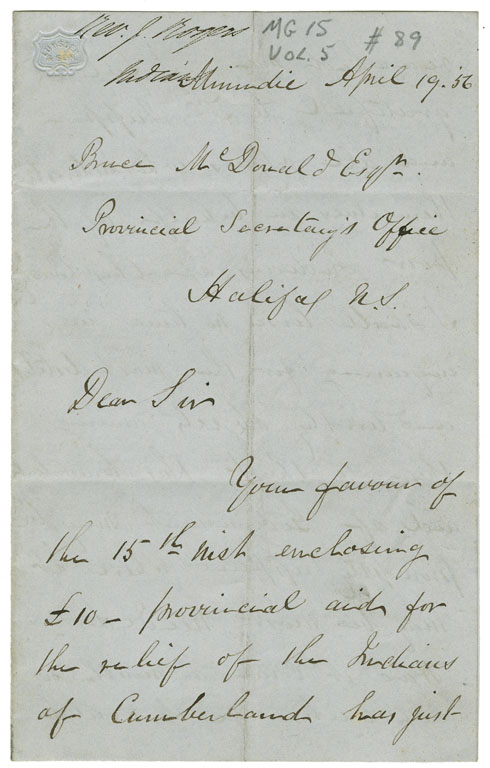 Rev. J. Rogers
MG 15
VOL. 5
# 89
Indians
Minudie April 19. 56
Bruce McDonald Esqr.
Provincial Secretary's Office
Halifax N.S.
Dear Sir
Your favour of
the 15th inst enclosing
£10 – provincial aid for
the relief of the Indians
of Cumberland has just